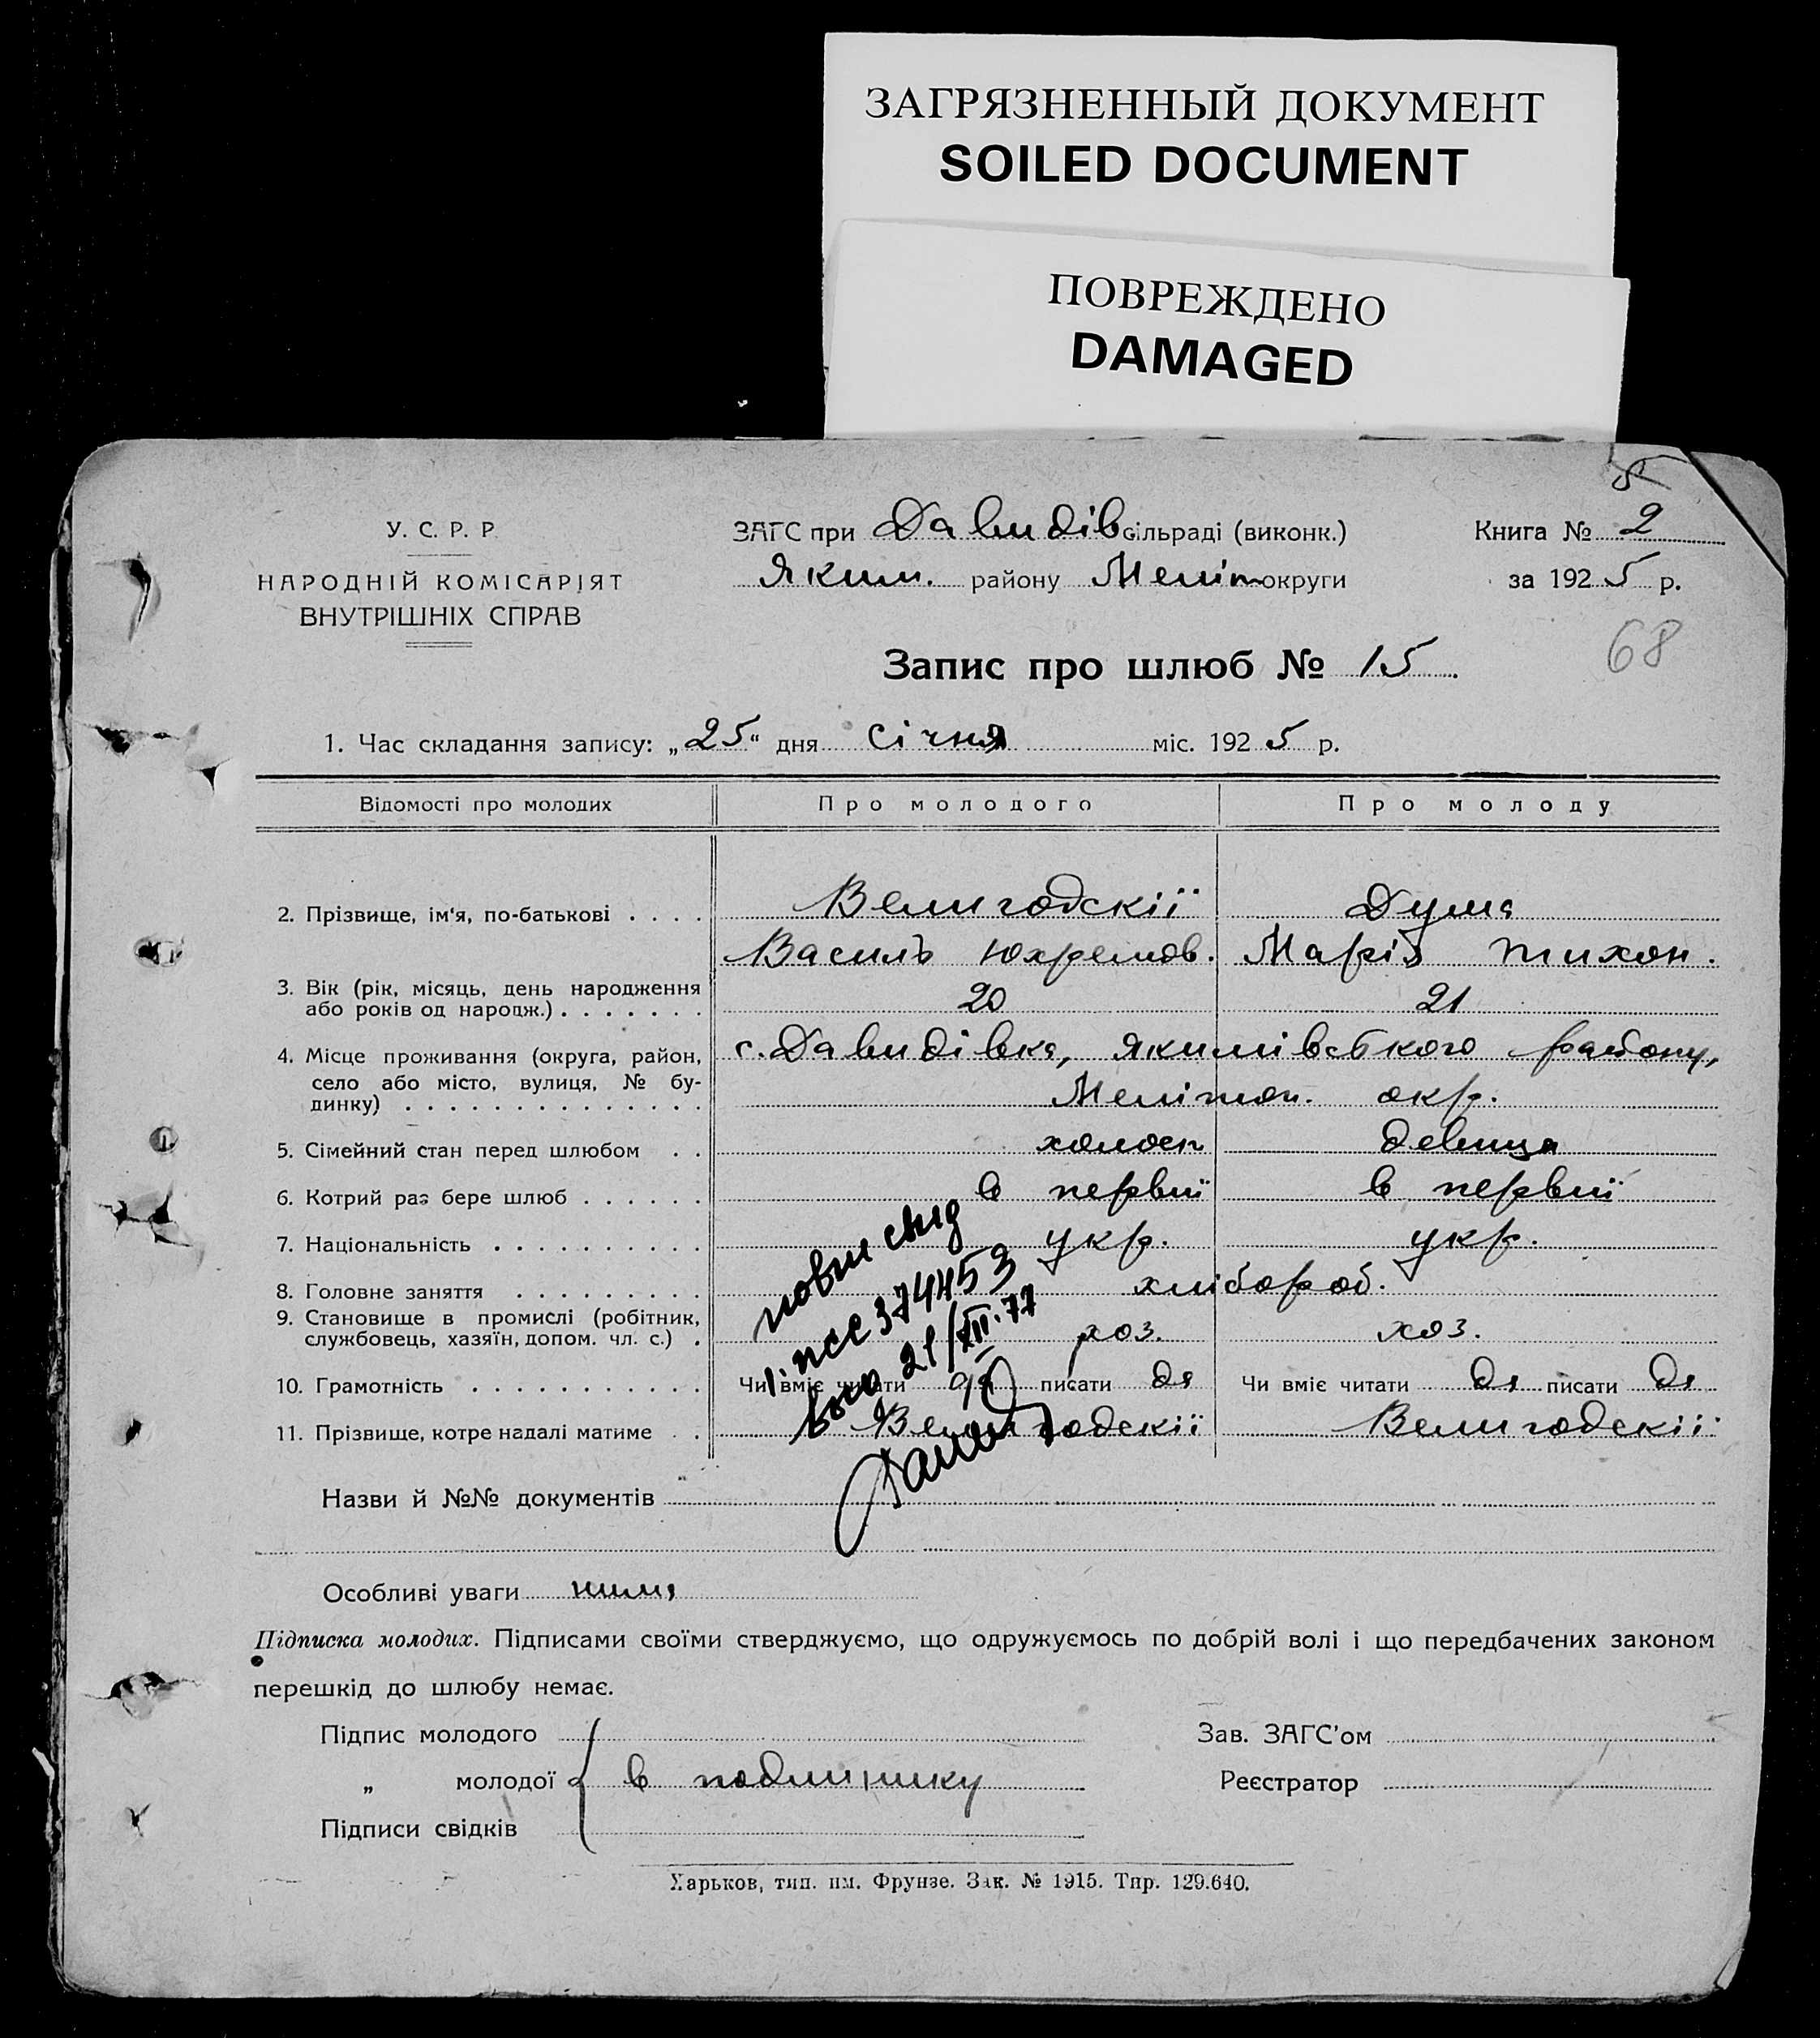 ЗАГРЯЗНЕННЫЙ ДОКУМЕНТ
SOILED DOCUMENT
ПОВРЕЖДЕНО
DAMAGED
У. С. Р. Р.
НАРОДНІЙ КОМІСАРІЯТ
ВНУТРІШНІХ СПРАВ
ЗАГС при Давидів сільраді (виконк.)
Яким. району Меліт округи
Книга № 2
за 1925 р.
68
Запис про шлюб № 15.
1. Час складання запису: „25“ дня січня міс. 1925 р.
Відомості про молодих Про молодого Про молоду
2. Прізвище, ім‘я, по-батькові . . . . Велигодскії Дума
Василь Юхремов. Марія Тихон.
3. Вік (рік, місяць, день народження
або років од народж.) . . . . . . . 20 21
4. Місце проживання (округа, район, с. Давидівка, Якимівського району,
село або місто, вулиця, № бу-
динку) . . . . . . . . . . . . . . Мелітоп. окр.
5. Сімейний стан перед шлюбом . . холост девица
6. Котрий раз бере шлюб . . . . . . в первиї в первиї
7. Національність . . . . . . . . . . укр. укр.
8. Головне заняття . . . . . . . . . хлібороб.
9. Становище в промислі (робітник,
службовець, хазяїн, допом. чл. с.) . хоз. хоз.
10. Грамотність . . . . . . . . . . . Чи вміє читати да писати да Чи вміє читати да писати да
11. Прізвище, котре надалі матиме . . Велигодскії Велигодскії
374453
21/XII.77
Назви й №№ документів
Особливі уваги нима
Підписка молодих. Підписами своїми стверджуємо, що одружуємось по добрій волі і що передбачених законом
перешкід до шлюбу немає.
Підпис молодого
„ молодої в подлинику
Підписи свідків
Зав. ЗАГС'ом
Реєстратор
Харьков, тип. им. Фрунзе. Зак. № 1915. Тир. 129.640.